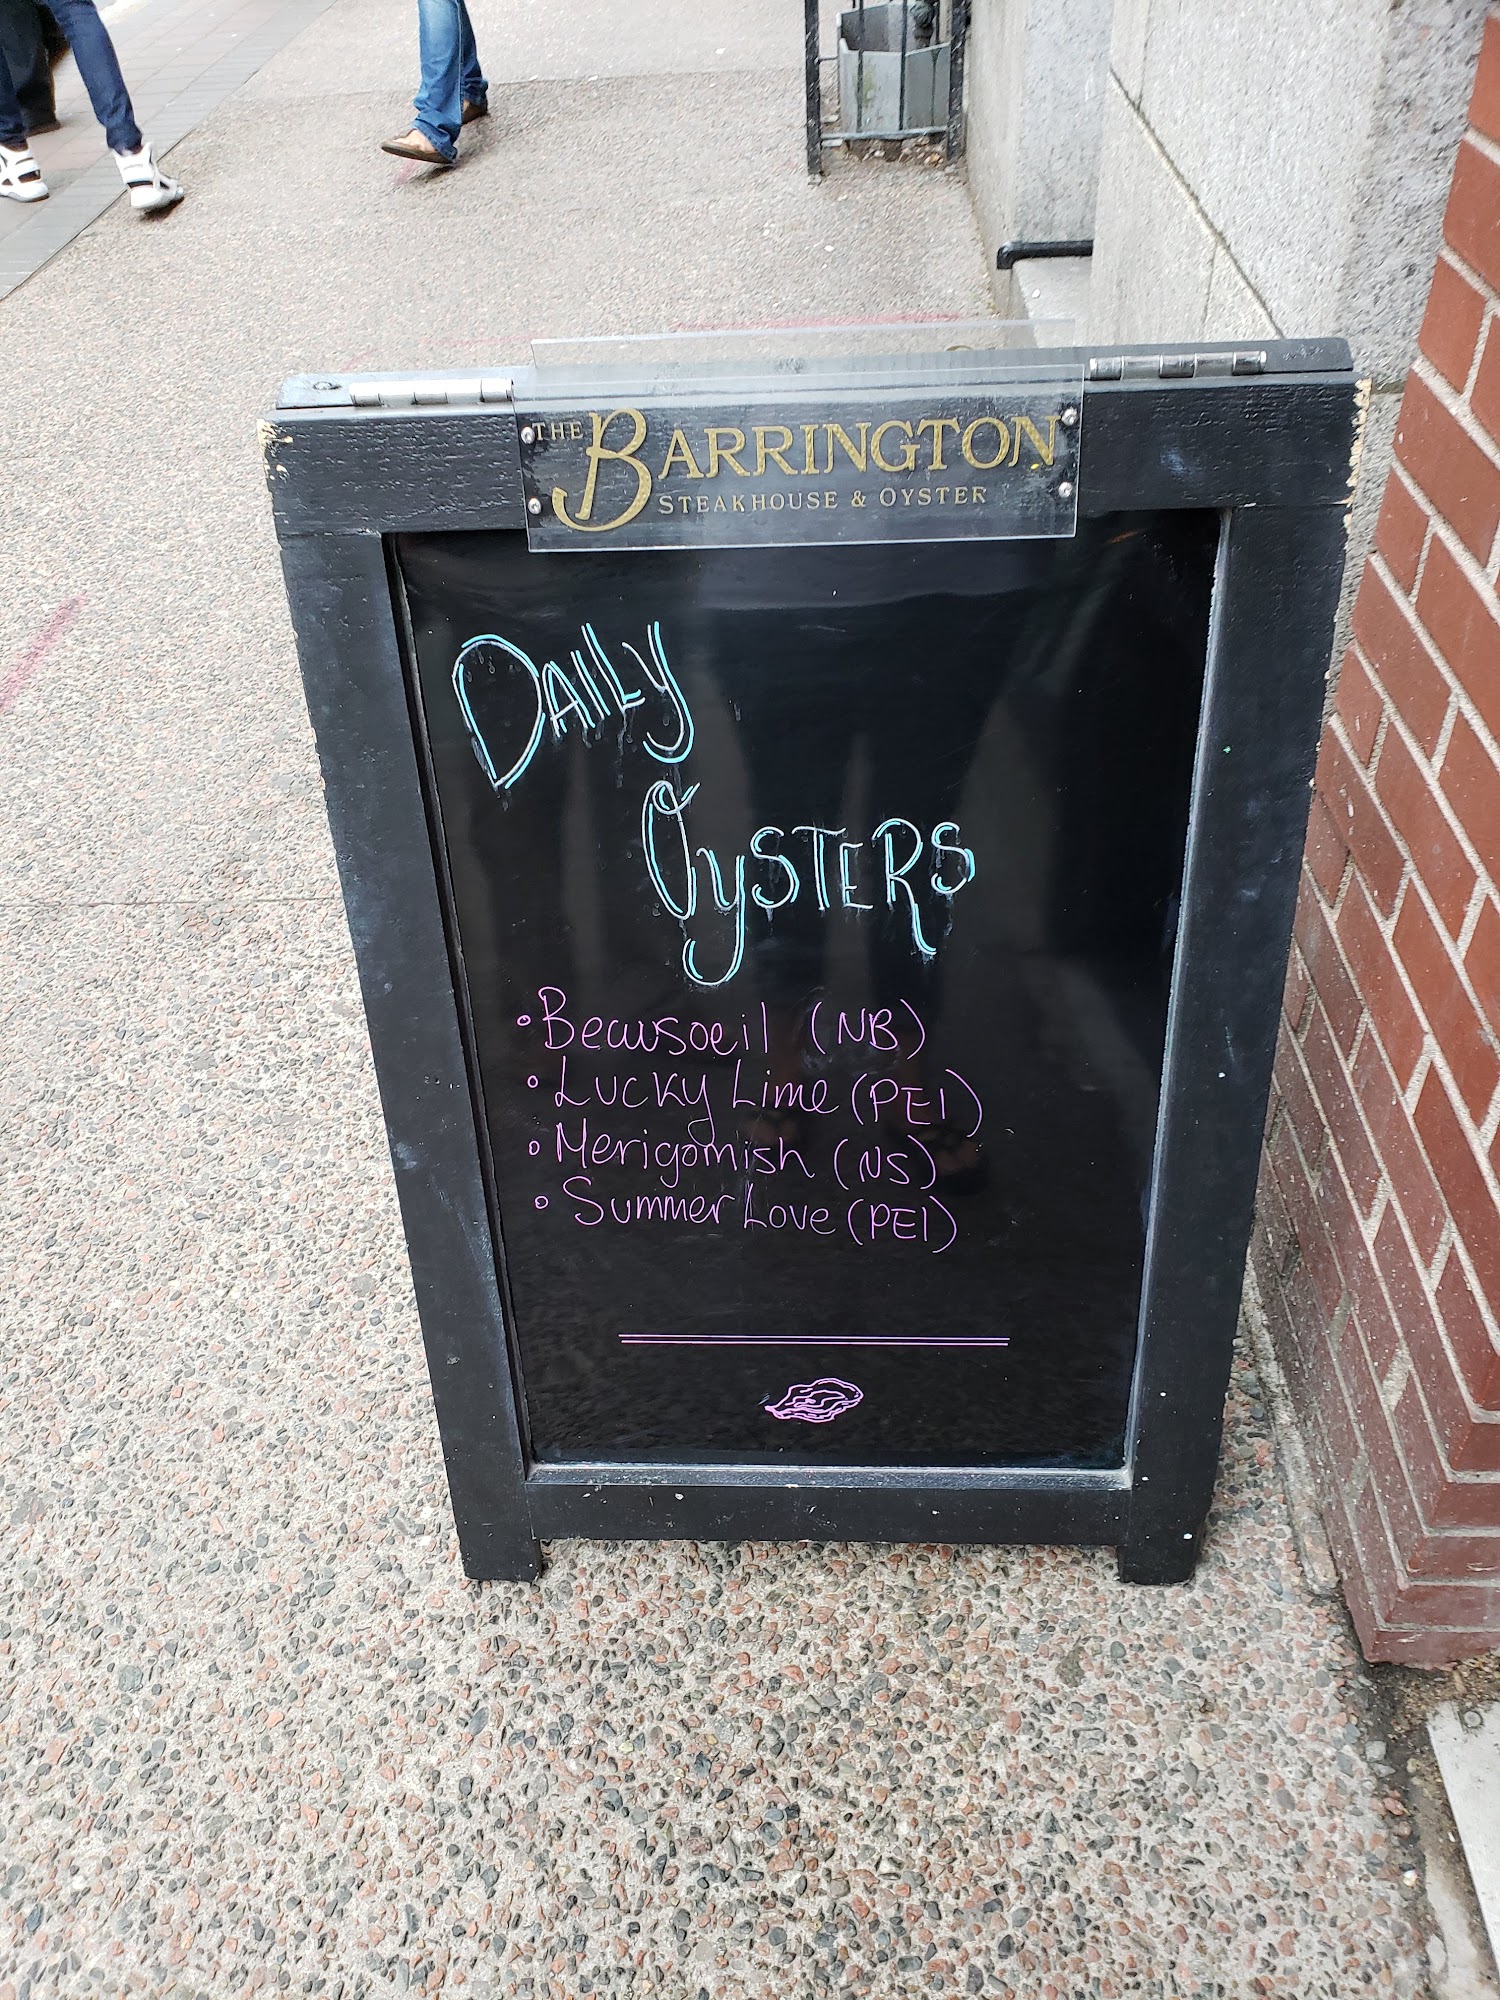 THE BARRINGTON
STEAKHOUSE & OYSTER
DAILY
OYSTERS
• Beausoeil (NB)
• Lucky Lime (PEI)
• Merigomish (NS)
• Summer Love (PEI)